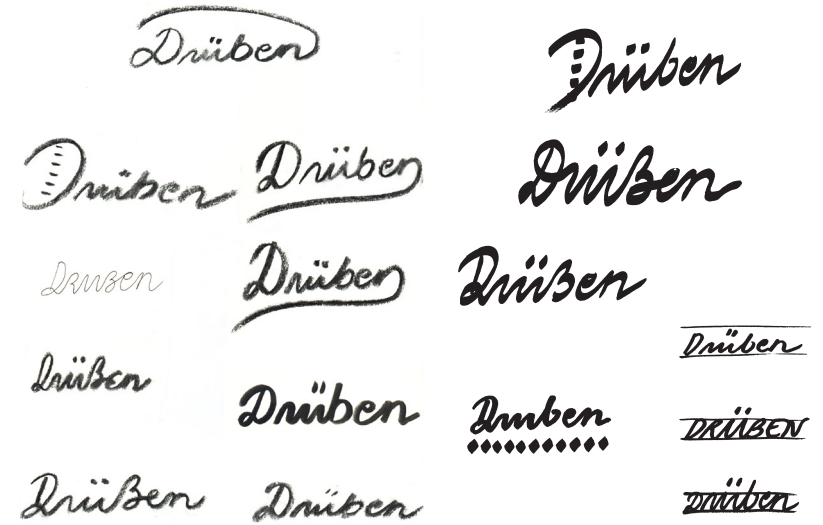 Drüben
Drüben
Drüben
Drüben
Drüßen
Drüben
Drußen
Drüben
Drüßen
Drüßen
Drüben
Drüben
Druben
DRÜBEN
Drüßen
Drüben
drüben